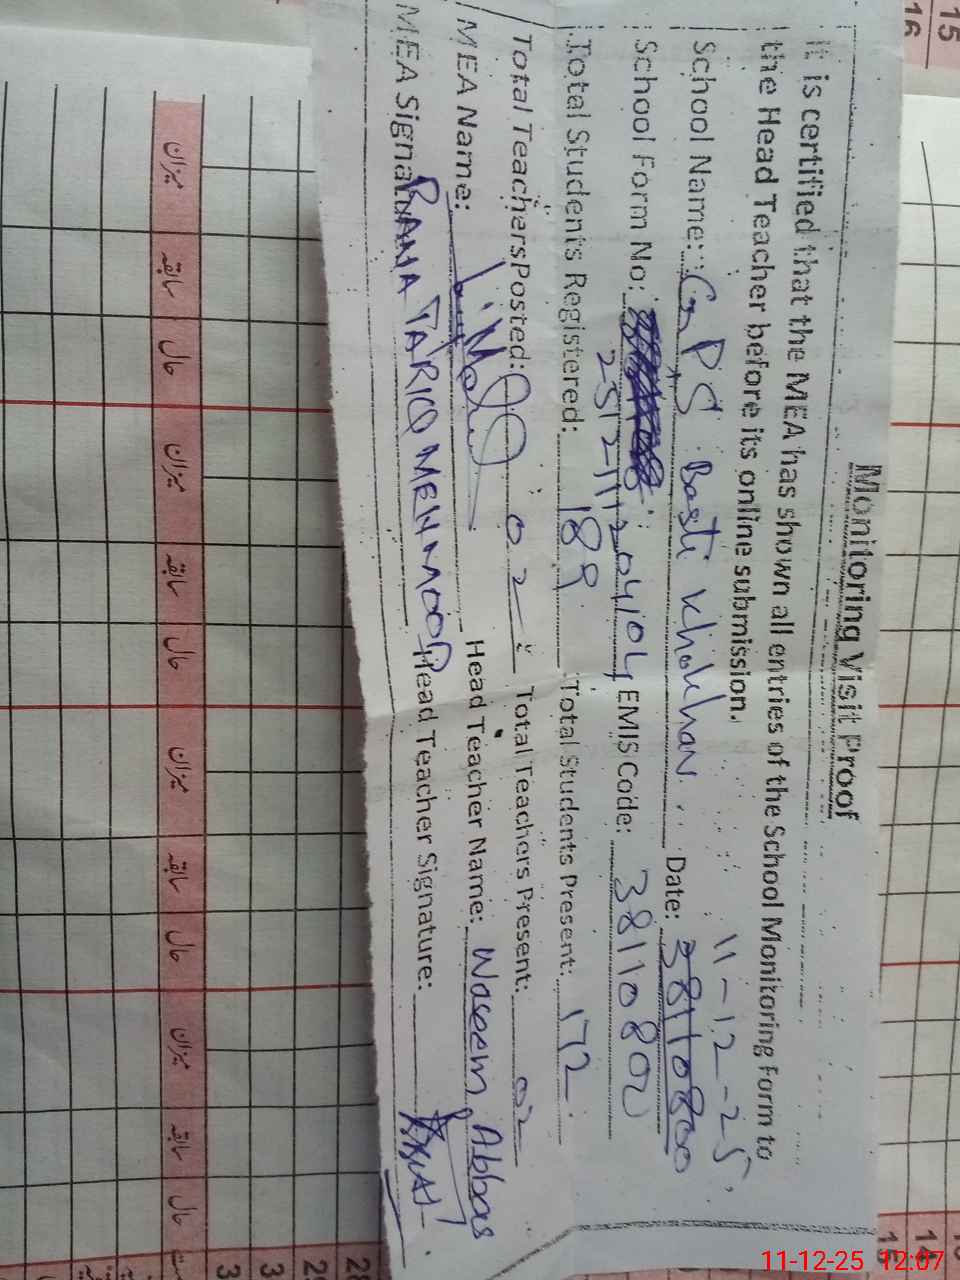 Monitoring Visit Proof
It is certified that the MEA has shown all entries of the School Monitoring Form to
the Head Teacher before its online submission.
11-12-25
School Name: G PS Basti Khokhan Date: 38110800
School Form No: 251211204104 EMIS Code: 38110800
Total Students Registered: 189 Total Students Present: 172
Total Teachers Posted: 02 Total Teachers Present: 02
MEA Name: Head Teacher Name: Waseem Abbas
MEA Signature RANA TARIQ MEHMOOD Head Teacher Signature:
میزان سابقہ حال میزان سابقہ حال میزان سابقہ حال میزان سابقہ حال
15
16
14
15
28
29
3
3
11-12-25 12:07